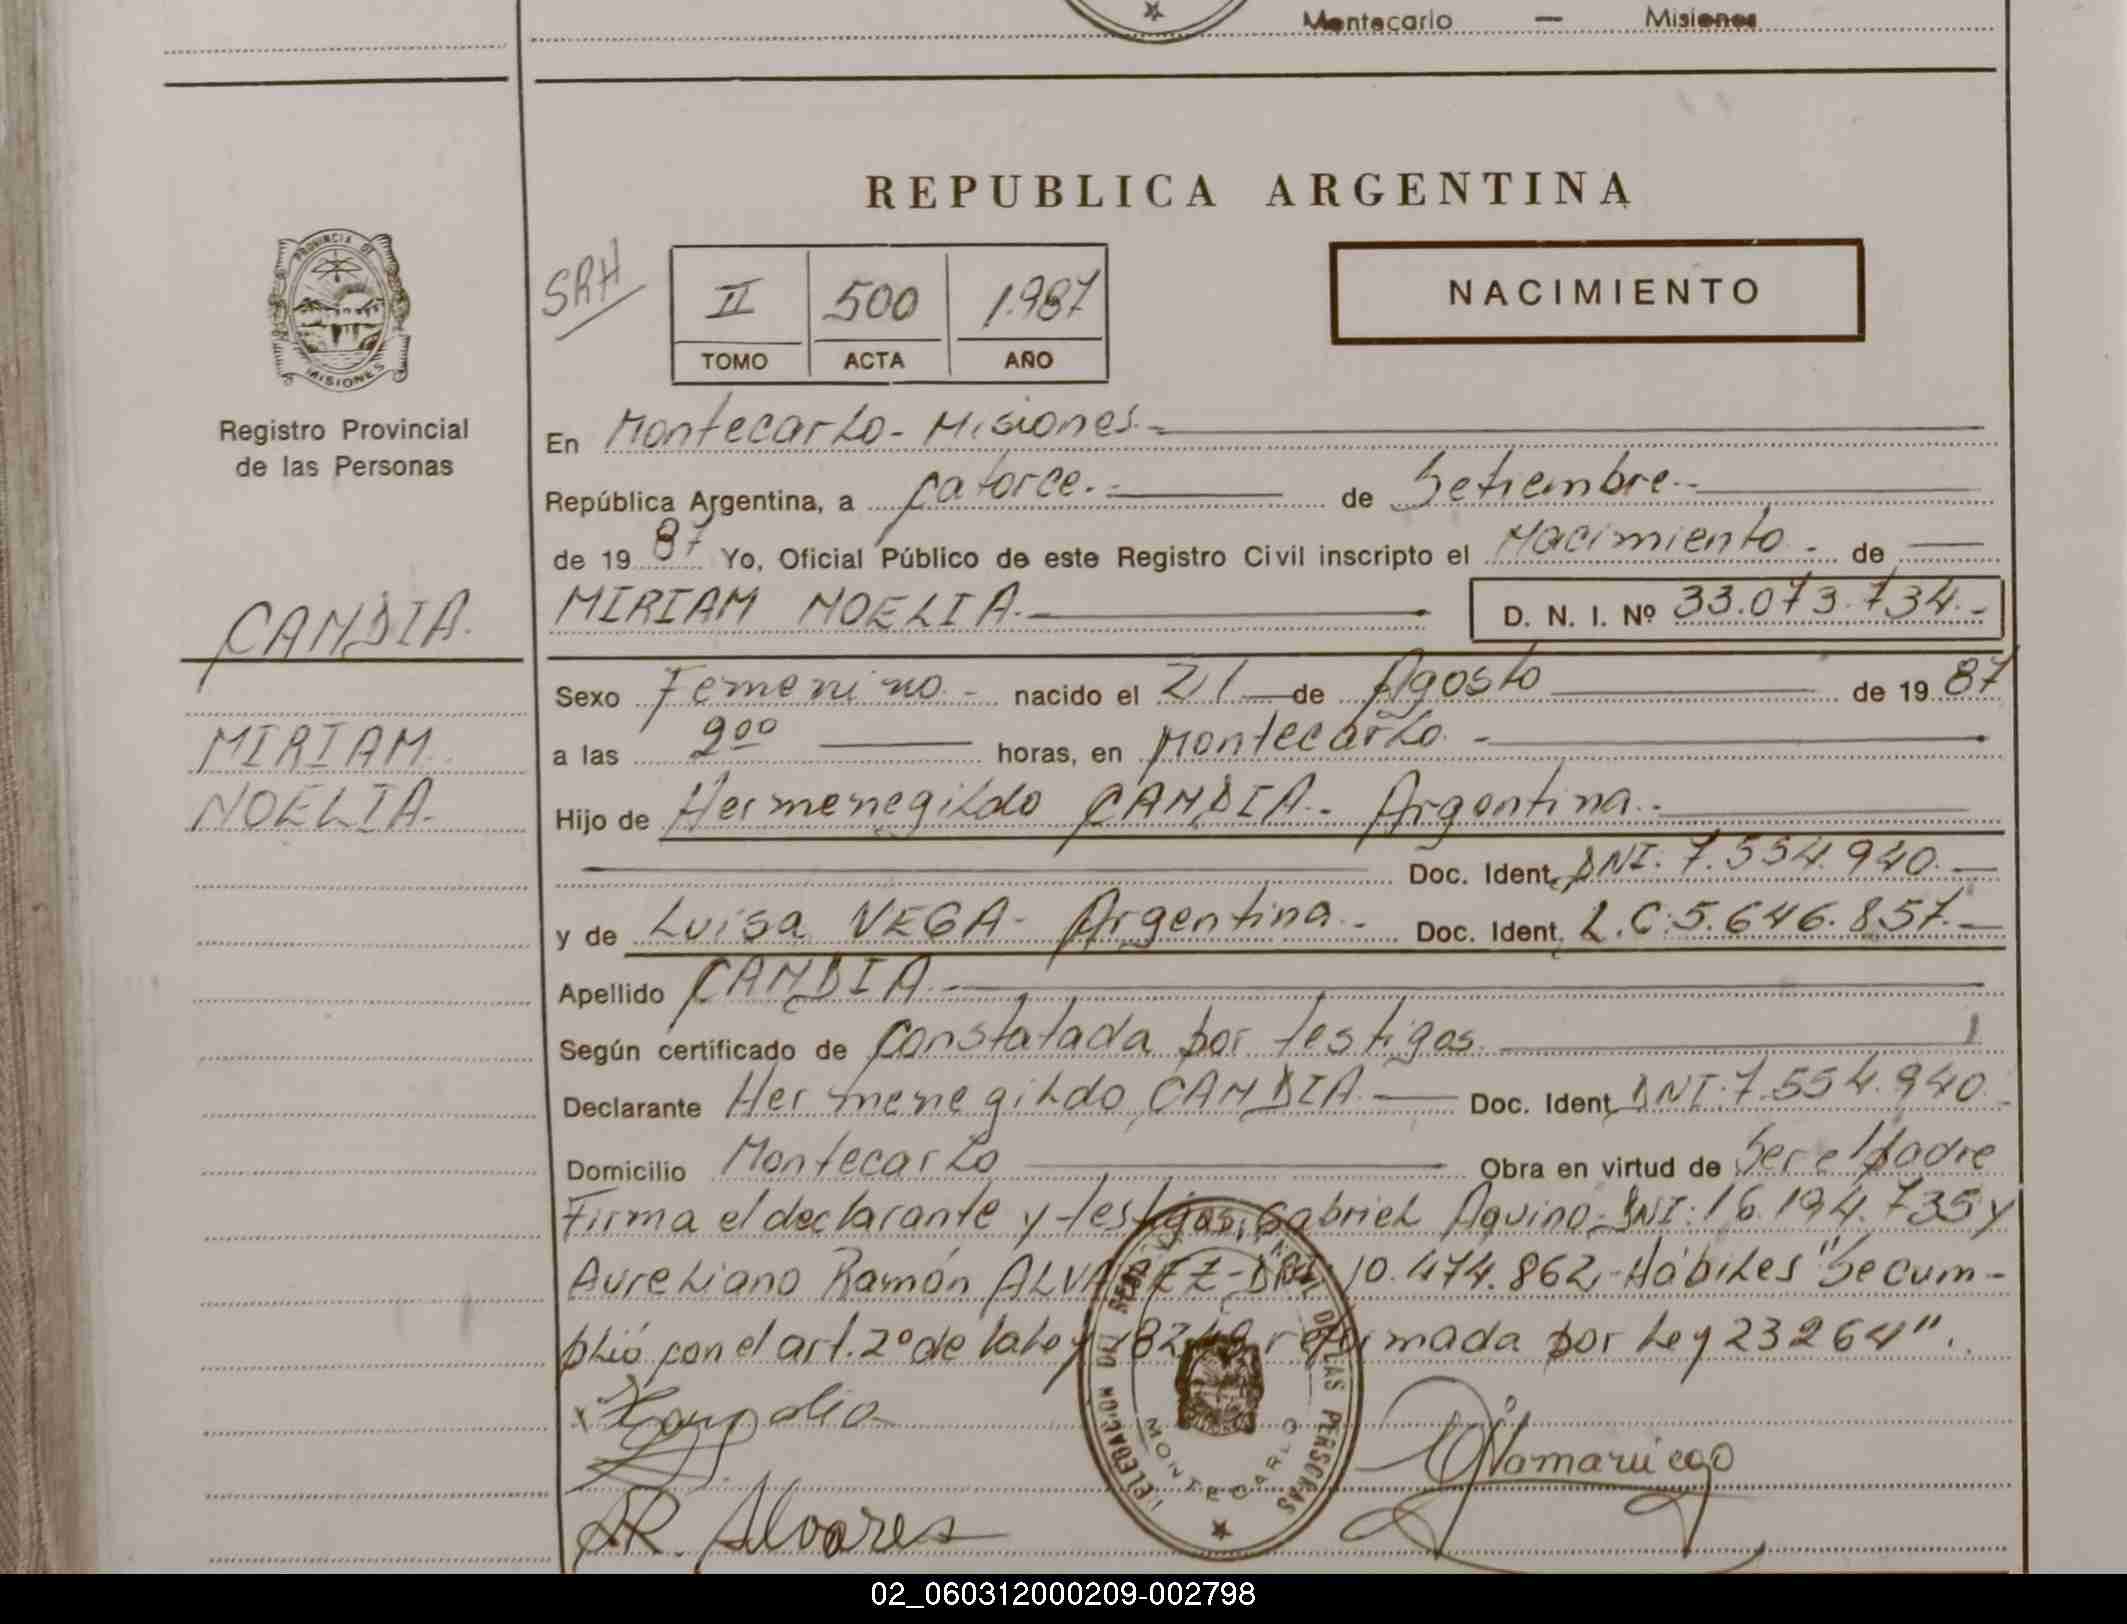 Montecarlo — Misiones
REPUBLICA ARGENTINA
PROVINCIA DE
MISIONES
Registro Provincial
de las Personas
SRH
II 500 1.987
TOMO ACTA AÑO
NACIMIENTO
En Montecarlo - Misiones.-
República Argentina, a catorce.- de Setiembre.-
de 1987 Yo, Oficial Público de este Registro Civil inscripto el Nacimiento - de
CANDIA.
MIRIAM NOELIA.- D. N. I. Nº 33.073.734.-
Sexo Femenino.- nacido el 21 de Agosto de 1987
MIRIAM
a las 9oo horas, en Montecarlo.-
NOELIA.
Hijo de Hermenegildo CANDIA.- Argentina.-
Doc. Ident. DNI: 7.554.940.-
y de Luisa VEGA- Argentina.- Doc. Ident. L.C: 5.646.857.-
Apellido CANDIA.-
Según certificado de constatada por testigos.
Declarante Hermenegildo CANDIA.- Doc. Ident. DNI: 7.554.940.-
Domicilio Montecarlo Obra en virtud de Ser el padre
Firma el declarante y testigos, Gabriel Aquino- DNI: 16.194.735 y
Aureliano Ramón ALVAREZ- DNI: 10.474.862,- Hábiles "Se cum-
plió con el art. 2º de la Ley 18248 reformada por Ley 23264".
x Candia
AR. Alvares
DELEGACION DEL DE LAS PERSONAS
MONTECARLO
02_060312000209-002798